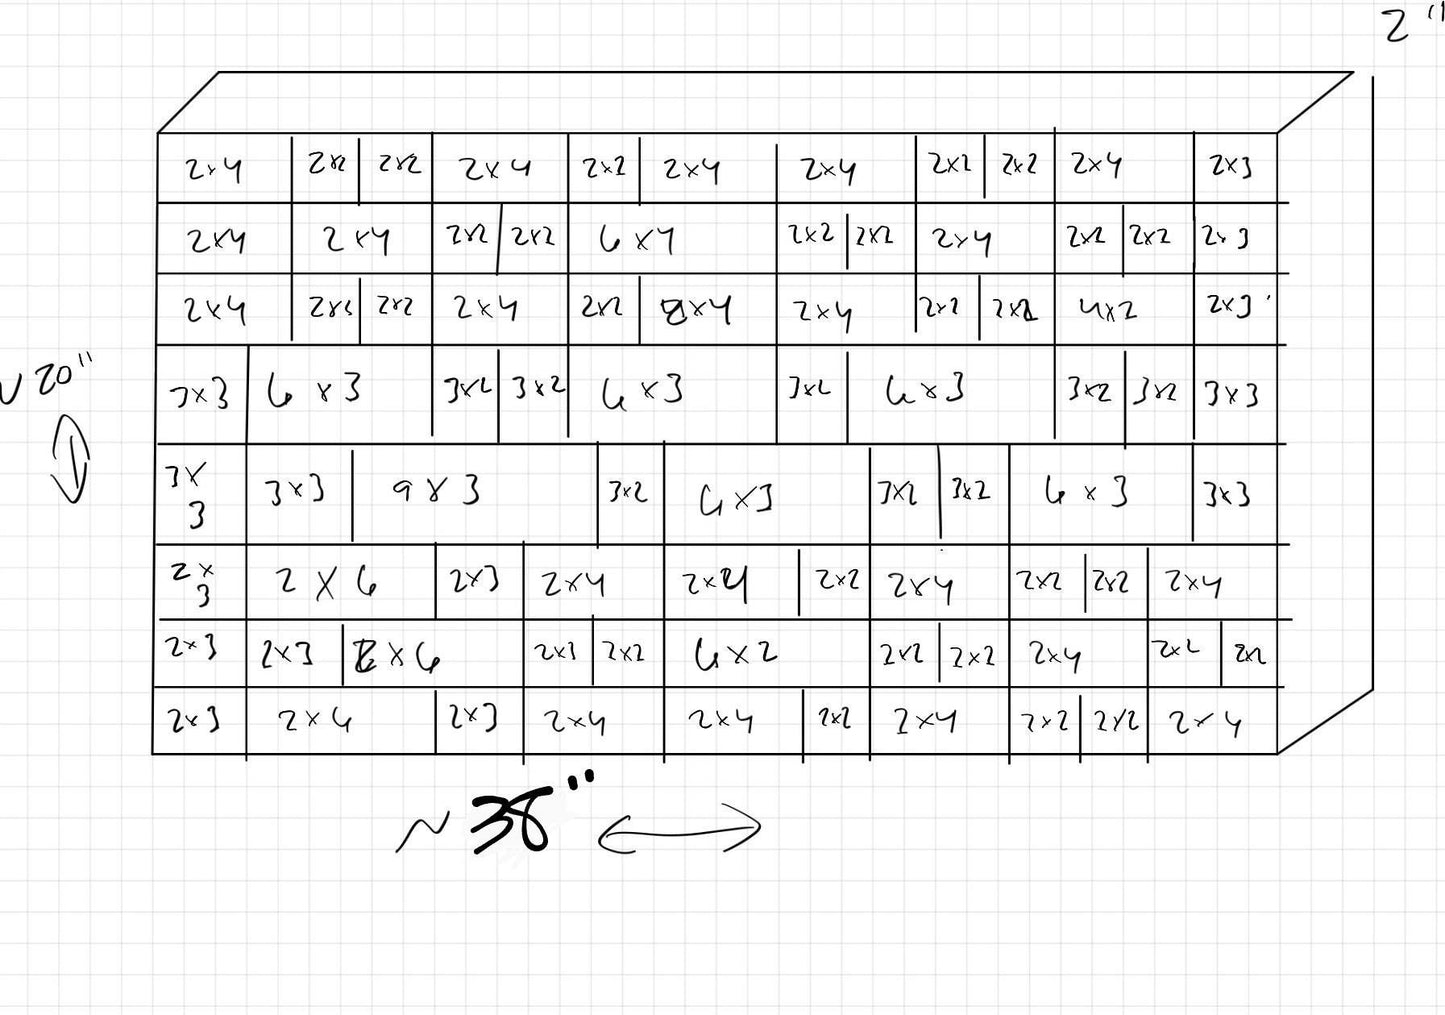 2"
2x4 2x2 2x2 2x4 2x2 2x4 2x4 2x2 2x2 2x4 2x3
2x4 2x4 2x2 2x2 6x4 2x2 2x2 2x4 2x2 2x2 2x3
2x4 2x2 2x2 2x4 2x2 2x4 2x4 2x2 2x2 4x2 2x3
~20"
3x3 6x3 3x2 3x2 6x3 3x2 6x3 3x2 3x2 3x3
3x
3
3x3 9x3 3x2 6x3 3x2 3x2 6x3 3x3
2x
3
2x6 2x3 2x4 2x4 2x2 2x4 2x2 2x2 2x4
2x3 2x3 2x6 2x2 6x2 2x2 2x2 2x4 2x2 2x2
2x3 2x6 2x3 2x4 2x4 2x2 2x4 2x2 2x2 2x4
~38"